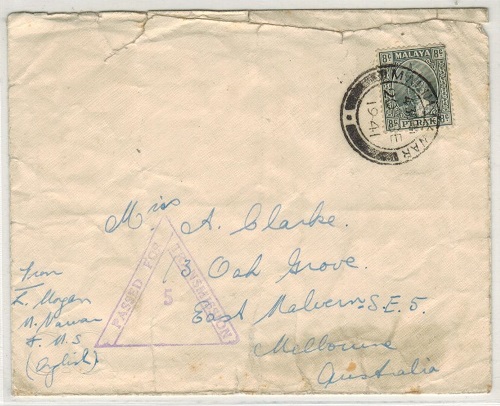 8c MALAYA 8c
8c PERAK 8c
1941
Miss A. Clarke.
3 Oak Grove.
East Malvern S.E. 5.
Melbourne
Australia
PASSED FOR TRANSMISSION
5
From
F.M.S
(English)